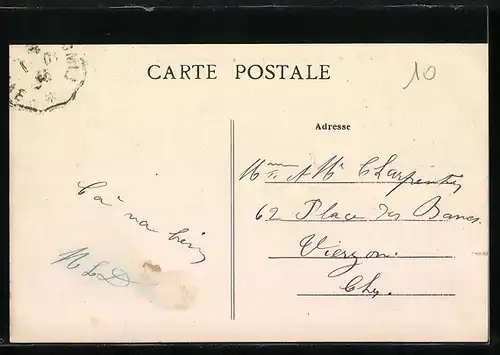 CARTE POSTALE
10
Adresse
Mme & Mr Charpentier
62 Place des Bancs.
Vierzon.
Cher.
Ça va bien